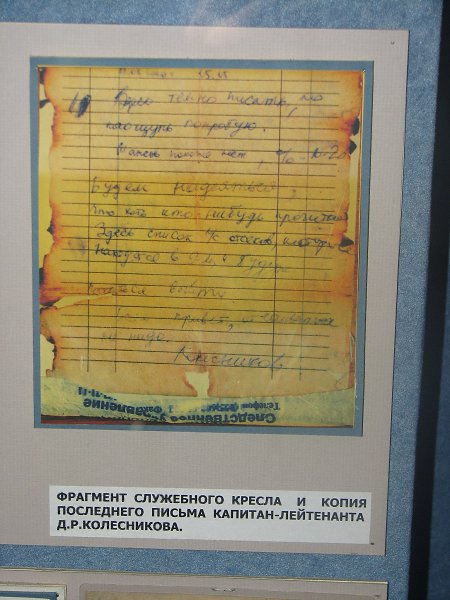 15.45
Здесь темно писать, но
наощупь попробую.
Шансов похоже нет, % 10-20
Будем надеяться,
что хоть кто нибудь прочитает
Здесь список л/с отсеков, которые
находятся в 9-м и
Всем привет, отчаиваться
не надо.
Колесников
Следственное управление
Телефон
Факс
ФРАГМЕНТ СЛУЖЕБНОГО КРЕСЛА И КОПИЯ
ПОСЛЕДНЕГО ПИСЬМА КАПИТАН-ЛЕЙТЕНАНТА
Д.Р.КОЛЕСНИКОВА.